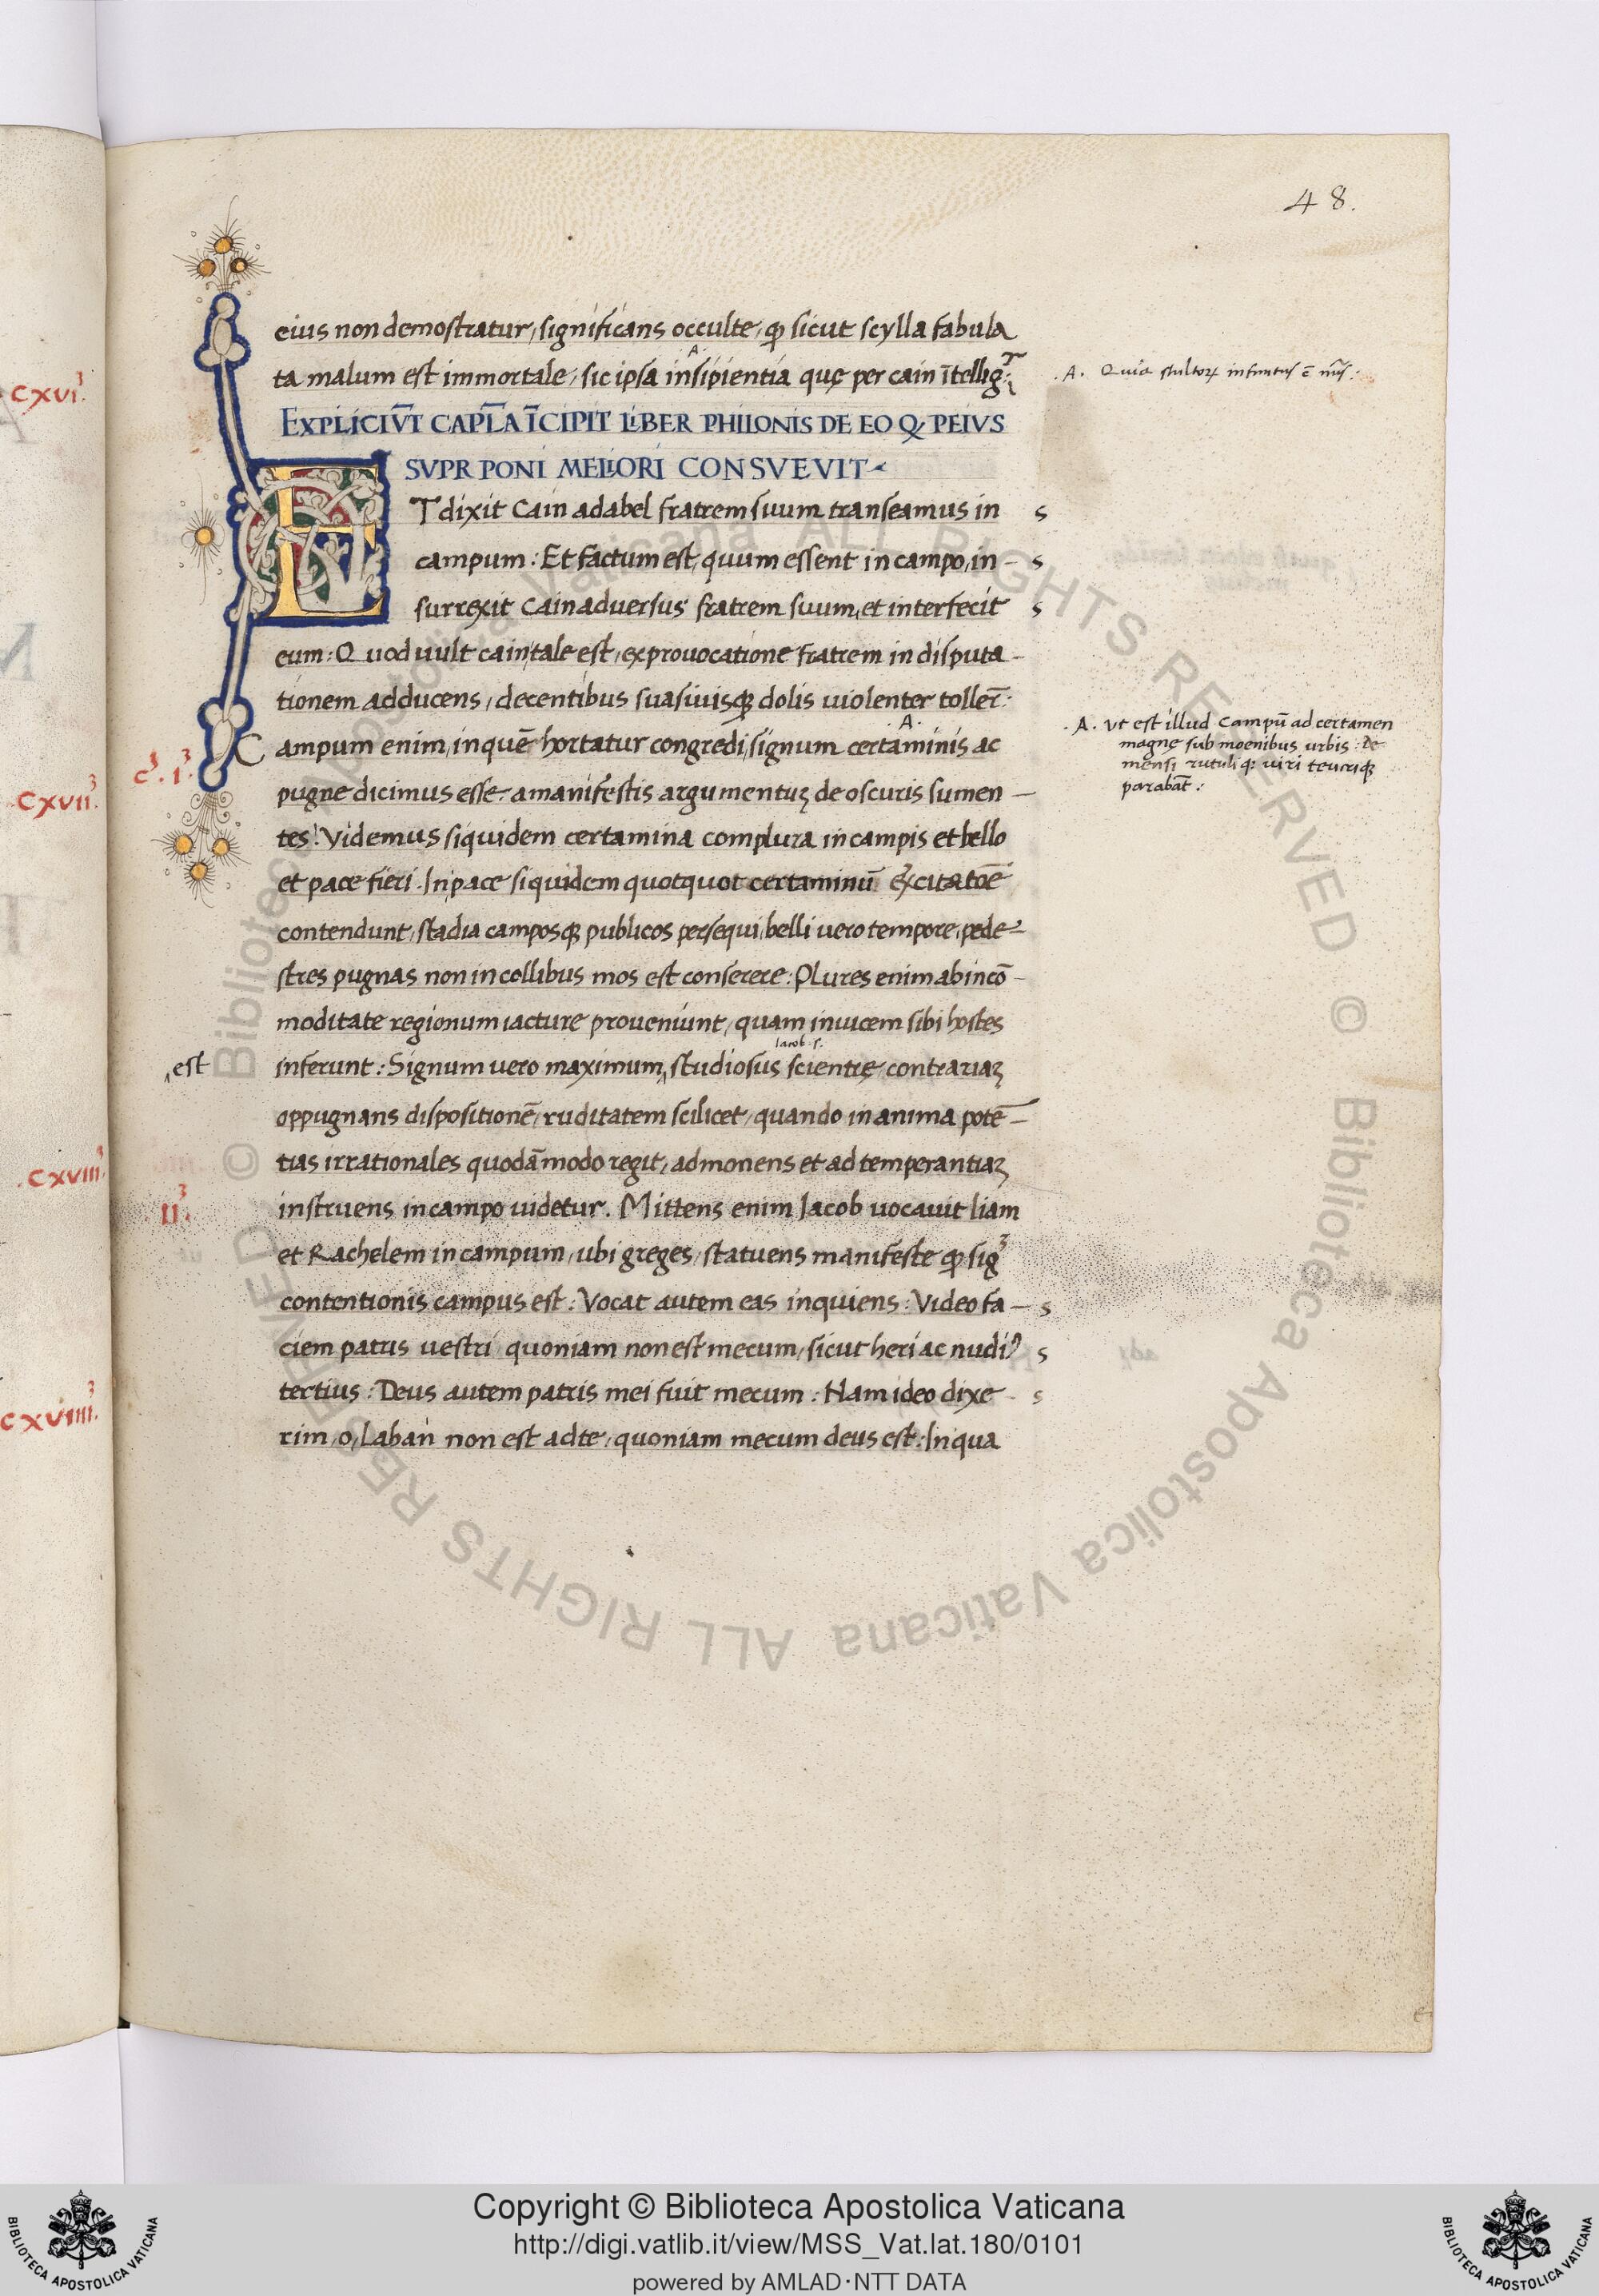 48.
eius non demostratur, significans occulte, ꝙ sicut scylla fabula
ta malum est immortale, sic ipsa insipientia quę per cain ītelligr̄:
A.
.A. Quia stultoꝝ infinitus ē nūs:
EXPLICIVT̄ CAPL̄A ĪCIPIT LIBER PHILONIS DE EO Q, PEIVS
SVPR PONI MELIORI CONSVEVIT
ET dixit Cain ad abel fratrem suum transeamus in s
campum: Et factum est, quum essent in campo, in- s
surrexit Cain aduersus fratrem suum, et interfecit s
eum: Quod uult cain, tale est, ex prouocatione fratrem in disputa-
tionem adducens, decentibus suasiuisqꝫ dolis uiolenter toller̄:
Campum enim, in quē hortatur congredi, signum certaminis ac
.A.
c³.1³.
.A. Vt est illud Campū ad certamen
magnę sub moenibus urbis: De
mensi rutuliq: uiri teucriqꝫ
parabāt:
pugne dicimus esse. a manifestis argumentuꝫ de oscuris sumen-
tes! Videmus siquidem certamina complura in campis et bello
et pace fieri. In pace siquidem quotquot certaminū excitatōe
contendunt, stadia camposqꝫ publicos persequi, belli uero tempore, pede-
stres pugnas non in collibus mos est conserere: Plures enim ab incō-
moditate regionum iacture proueniunt, quam inuicem sibi hostes
Iacob .s.
‸est
inferunt: Signum uero maximum‸ studiosus scientię, contrariaꝫ
oppugnans dispositionē, ruditatem scilicet, quando in anima potē-
tias irrationales quodāmodo regit, admonens et ad temperantiaꝫ
II³.
instruens in campo uidetur. Mittens enim Jacob uocauit liam
et Rachelem in campum, ubi greges, statuens manifeste ꝙ sig³
contentionis campus est: Vocat autem eas inquiens: Video fa- s
ciem patris uestri quoniam non est mecum, sicut heri ac nudiꝰ s
tertius: Deus autem patris mei fuit mecum: Nam ideo dixe- s
rim, o, Laban non est ad te, quoniam mecum deus est: In qua
CXVI³.
CXVII³.
.CXVIII³.
CXVIIII³.
Biblioteca Apostolica Vaticana ALL RIGHTS RESERVED © Biblioteca Apostolica Vaticana ALL RIGHTS RESERVED ©
Copyright © Biblioteca Apostolica Vaticana
http://digi.vatlib.it/view/MSS_Vat.lat.180/0101
powered by AMLAD·NTT DATA
BIBLIOTECA APOSTOLICA VATICANA
BIBLIOTECA APOSTOLICA VATICANA